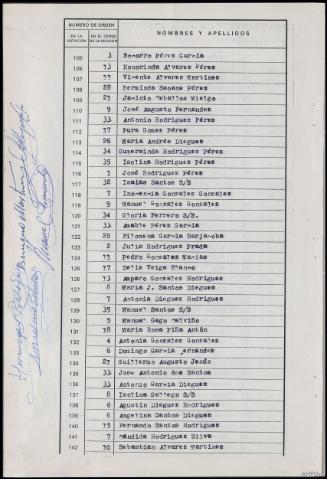 NUMERO DE ORDEN
NOMBRES Y APELLIDOS
EN LA VOTACION
EN EL CENSO DE LA SECCION
105 3 Socorro Pérez Garcia
106 73 Honorinda Alvarez Pérez
107 77 Vicente Alvarez Martinez
108 28 Herminda Seoane Pérez
109 27 Jacinto Ceballos Mielgo
110 9 José Augusto Fernandez
111 33 Antonio Rodriguez Pérez
112 37 Pura Gomez Pérez
113 26 Maria Andrés Dieguez
114 34 Gumersinda Rodriguez Pérez
115 35 Isolina Rodriguez Pérez
116 1 José Rodriguez Pérez
117 32 Isaias Santos S/S
118 7 Inocencia Gonzalez Gonzalez
119 9 Manuel Gonzalez Gonzalez
120 34 Gloria Ferrero S/S.
121 33 Amable Pérez Garcia
122 28 Filomena Garcia Barjacoba
123 2 Julia Rodriguez Prada
124 73 Pedro Gonzalez Macias
125 37 Delia Veiga Blanco
126 73 Amparo Gonzalez Rodriguez
127 8 Maria J. Santos Dieguez
128 7 Antonia Dieguez Rodriguez
129 35 Manuel Santos S/S
130 5 Manuel Gago Calviño
131 38 Maria Rosa Piña Antón
132 4 Antonia Gonzalez Gonzalez
133 6 Domingo Garcia Fernandez
134 27 Guillermo Augusto Jesús
135 33 Jose Antonio dos Santos
136 33 Antonio Garcia Dieguez
137 8 Isolina Gallego S/S
138 6 Agustin Dieguez Rodriguez
139 6 Angelina Santos Dieguez
140 35 Fernando Santos Rodriguez
141 7 Cándida Rodriguez Silva
142 30 Sebastian Alvarez Martinez